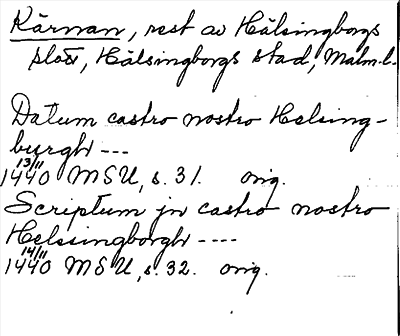 Kärnan, rest av Hälsingborgs
slott, Hälsingborgs stad, Malm. l.
Datum castro nostro Helsing-
burgh ---
13/11
1440 MSU, s. 31. orig.
Scriptum jn castro nostro
Helssingborgh ----
14/11
1440 MSU, s. 32. orig.